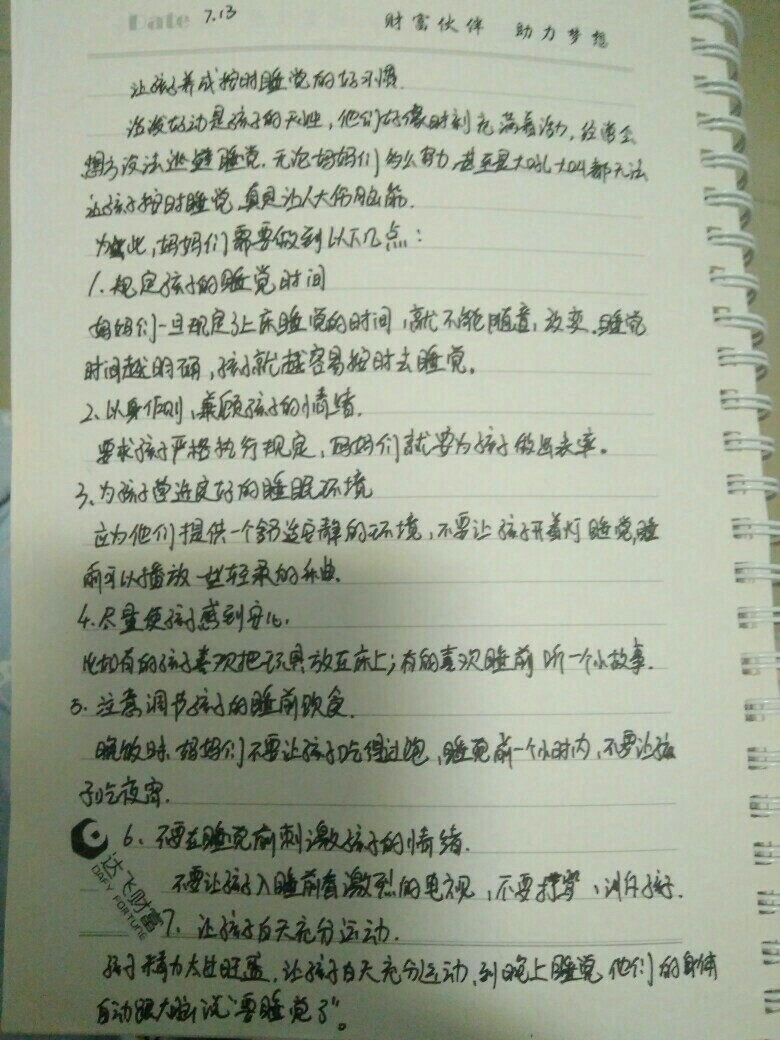 Date 7.13 财富伙伴 助力梦想
让孩子养成按时睡觉的好习惯.
活泼好动是孩子的天性,他们好像时刻充满着活力,经常会
想方设法逃避睡觉.无论妈妈们多么努力,甚至是大吼大叫都无法
让孩子按时睡觉,真是让人大伤脑筋.
为此,妈妈们需要做到以下几点:
1.规定孩子的睡觉时间
妈妈们一旦规定了上床睡觉的时间,就不能随意改变.睡觉
时间越明确,孩子就越容易按时去睡觉。
2.以身作则,兼顾孩子的情绪.
要求孩子严格执行规定,妈妈们就要为孩子做出表率。
3、为孩子营造良好的睡眠环境
应为他们提供一个舒适安静的环境,不要让孩子开着灯睡觉,睡
前可以播放一些轻柔的乐曲.
4.尽量使孩子感到安心.
比如有的孩子喜欢把玩具放在床上;有的喜欢睡前听一个小故事.
5.注意调节孩子的睡前饮食.
晚饭时.妈妈们不要让孩子吃得过饱,睡觉前一个小时内,不要让孩
子吃夜宵.
6、不要在睡觉前刺激孩子的情绪.
不要让孩子入睡前看激烈的电视,不要打骂、训斥孩子.
达飞财富
DAFY FORTUNE
7、让孩子白天充分运动.
孩子精力太过旺盛,让孩子白天充分运动,到晚上睡觉他们的身体
自动跟大脑说"要睡觉了"。